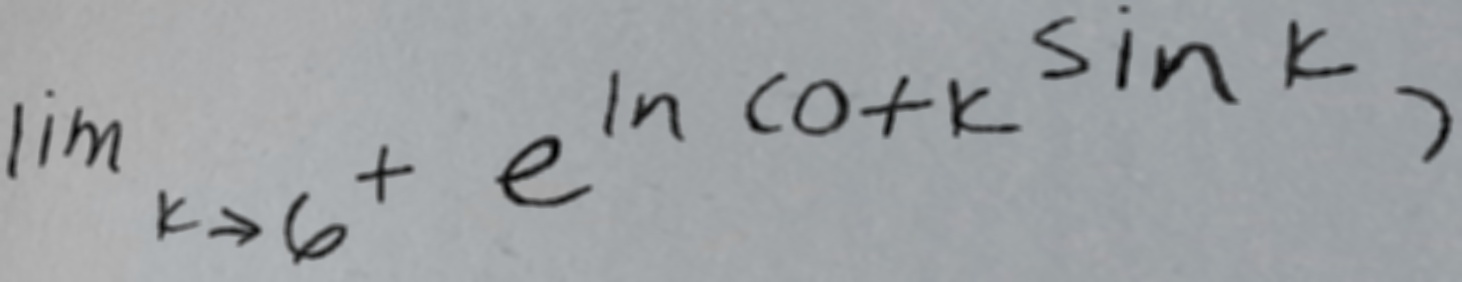 lim k→6⁺ e^{ln cot k^{sin k}},